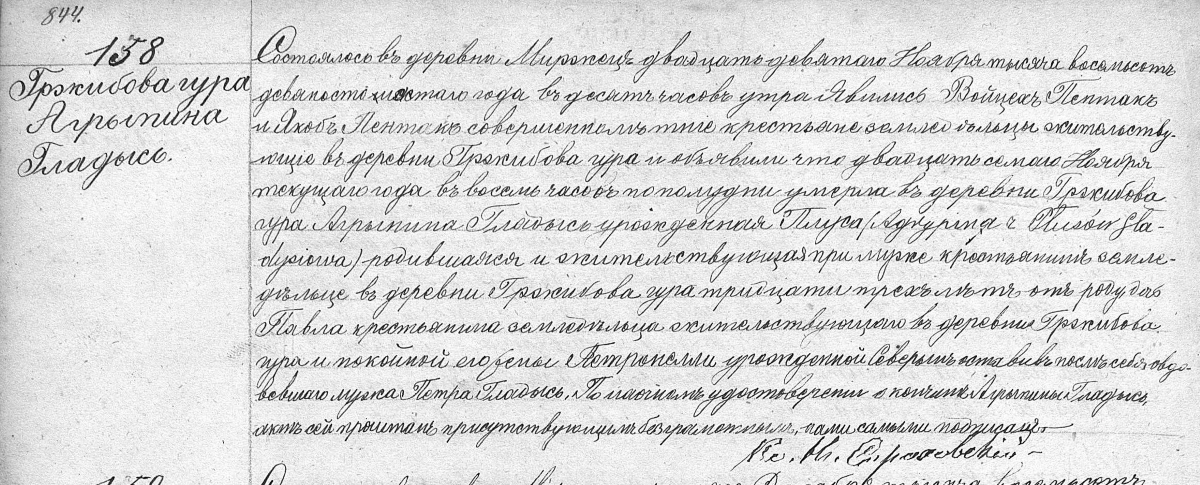 844.
158
Гржибова гура
Агрыпина
Гладысь.
Состоялось въ деревни Миржецъ двадцать девятаго Ноября тысяча восемьсотъ
девяносто шестаго года въ десять часовъ утра Явились Войцехъ Пентакъ
и Якобъ Пентакъ совершеннолѣтніе крестьяне земледѣльцы жительству-
ющіе въ деревни Гржибова гура и объявили что двадцать семаго Ноября
текущаго года въ восемь часовъ пополудни умерла въ деревни Гржибова
гура Агрыпина Гладысь урожденная Плуса (Agrypina z Plusów Gła-
dysiowa) родившаяся и жительствующая при мужѣ крестьянинѣ земле-
дѣльце въ деревни Гржибова гура тридцати трехъ лѣтъ отъ роду дочь
Павла крестьянина земледѣльца жительствующаго въ деревни Гржибова
гура и покойной его жены Петронелли урожденной Северинъ оставивъ послѣ себя овдо-
вѣвшаго мужа Петра Гладысь. По настномъ удостовѣреніи о кончинѣ Агрыпины Гладысь,
актъ сей прочитанъ присутствующимъ безграмотнымъ, нами самыми подписанъ
Кс. Мі.
158